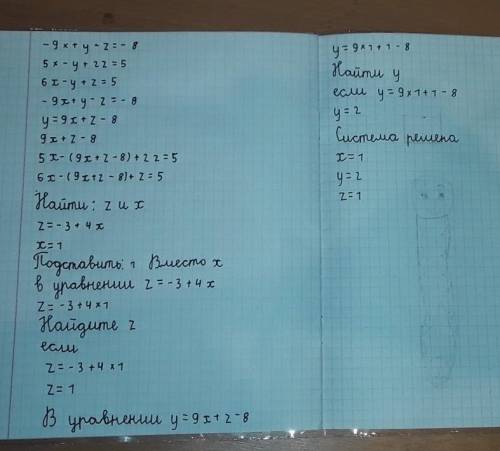 -9x+y-z=-8
5x-y+2z=5
6x-y+z=5
-9x+y-z=-8
y=9x+z-8
9x+z-8
5x-(9x+z-8)+2z=5
6x-(9x+z-8)+z=5
Найти: z и x
z=-3+4x
x=1
Подставить: 1 Вместо x
в уравнении z=-3+4x
z=-3+4×1
Найдите z
если
z=-3+4×1
z=1
В уравнении y=9x+z-8
y=9×1+1-8
Найти y
если y=9×1+1-8
y=2
Система решена
x=1
y=2
z=1